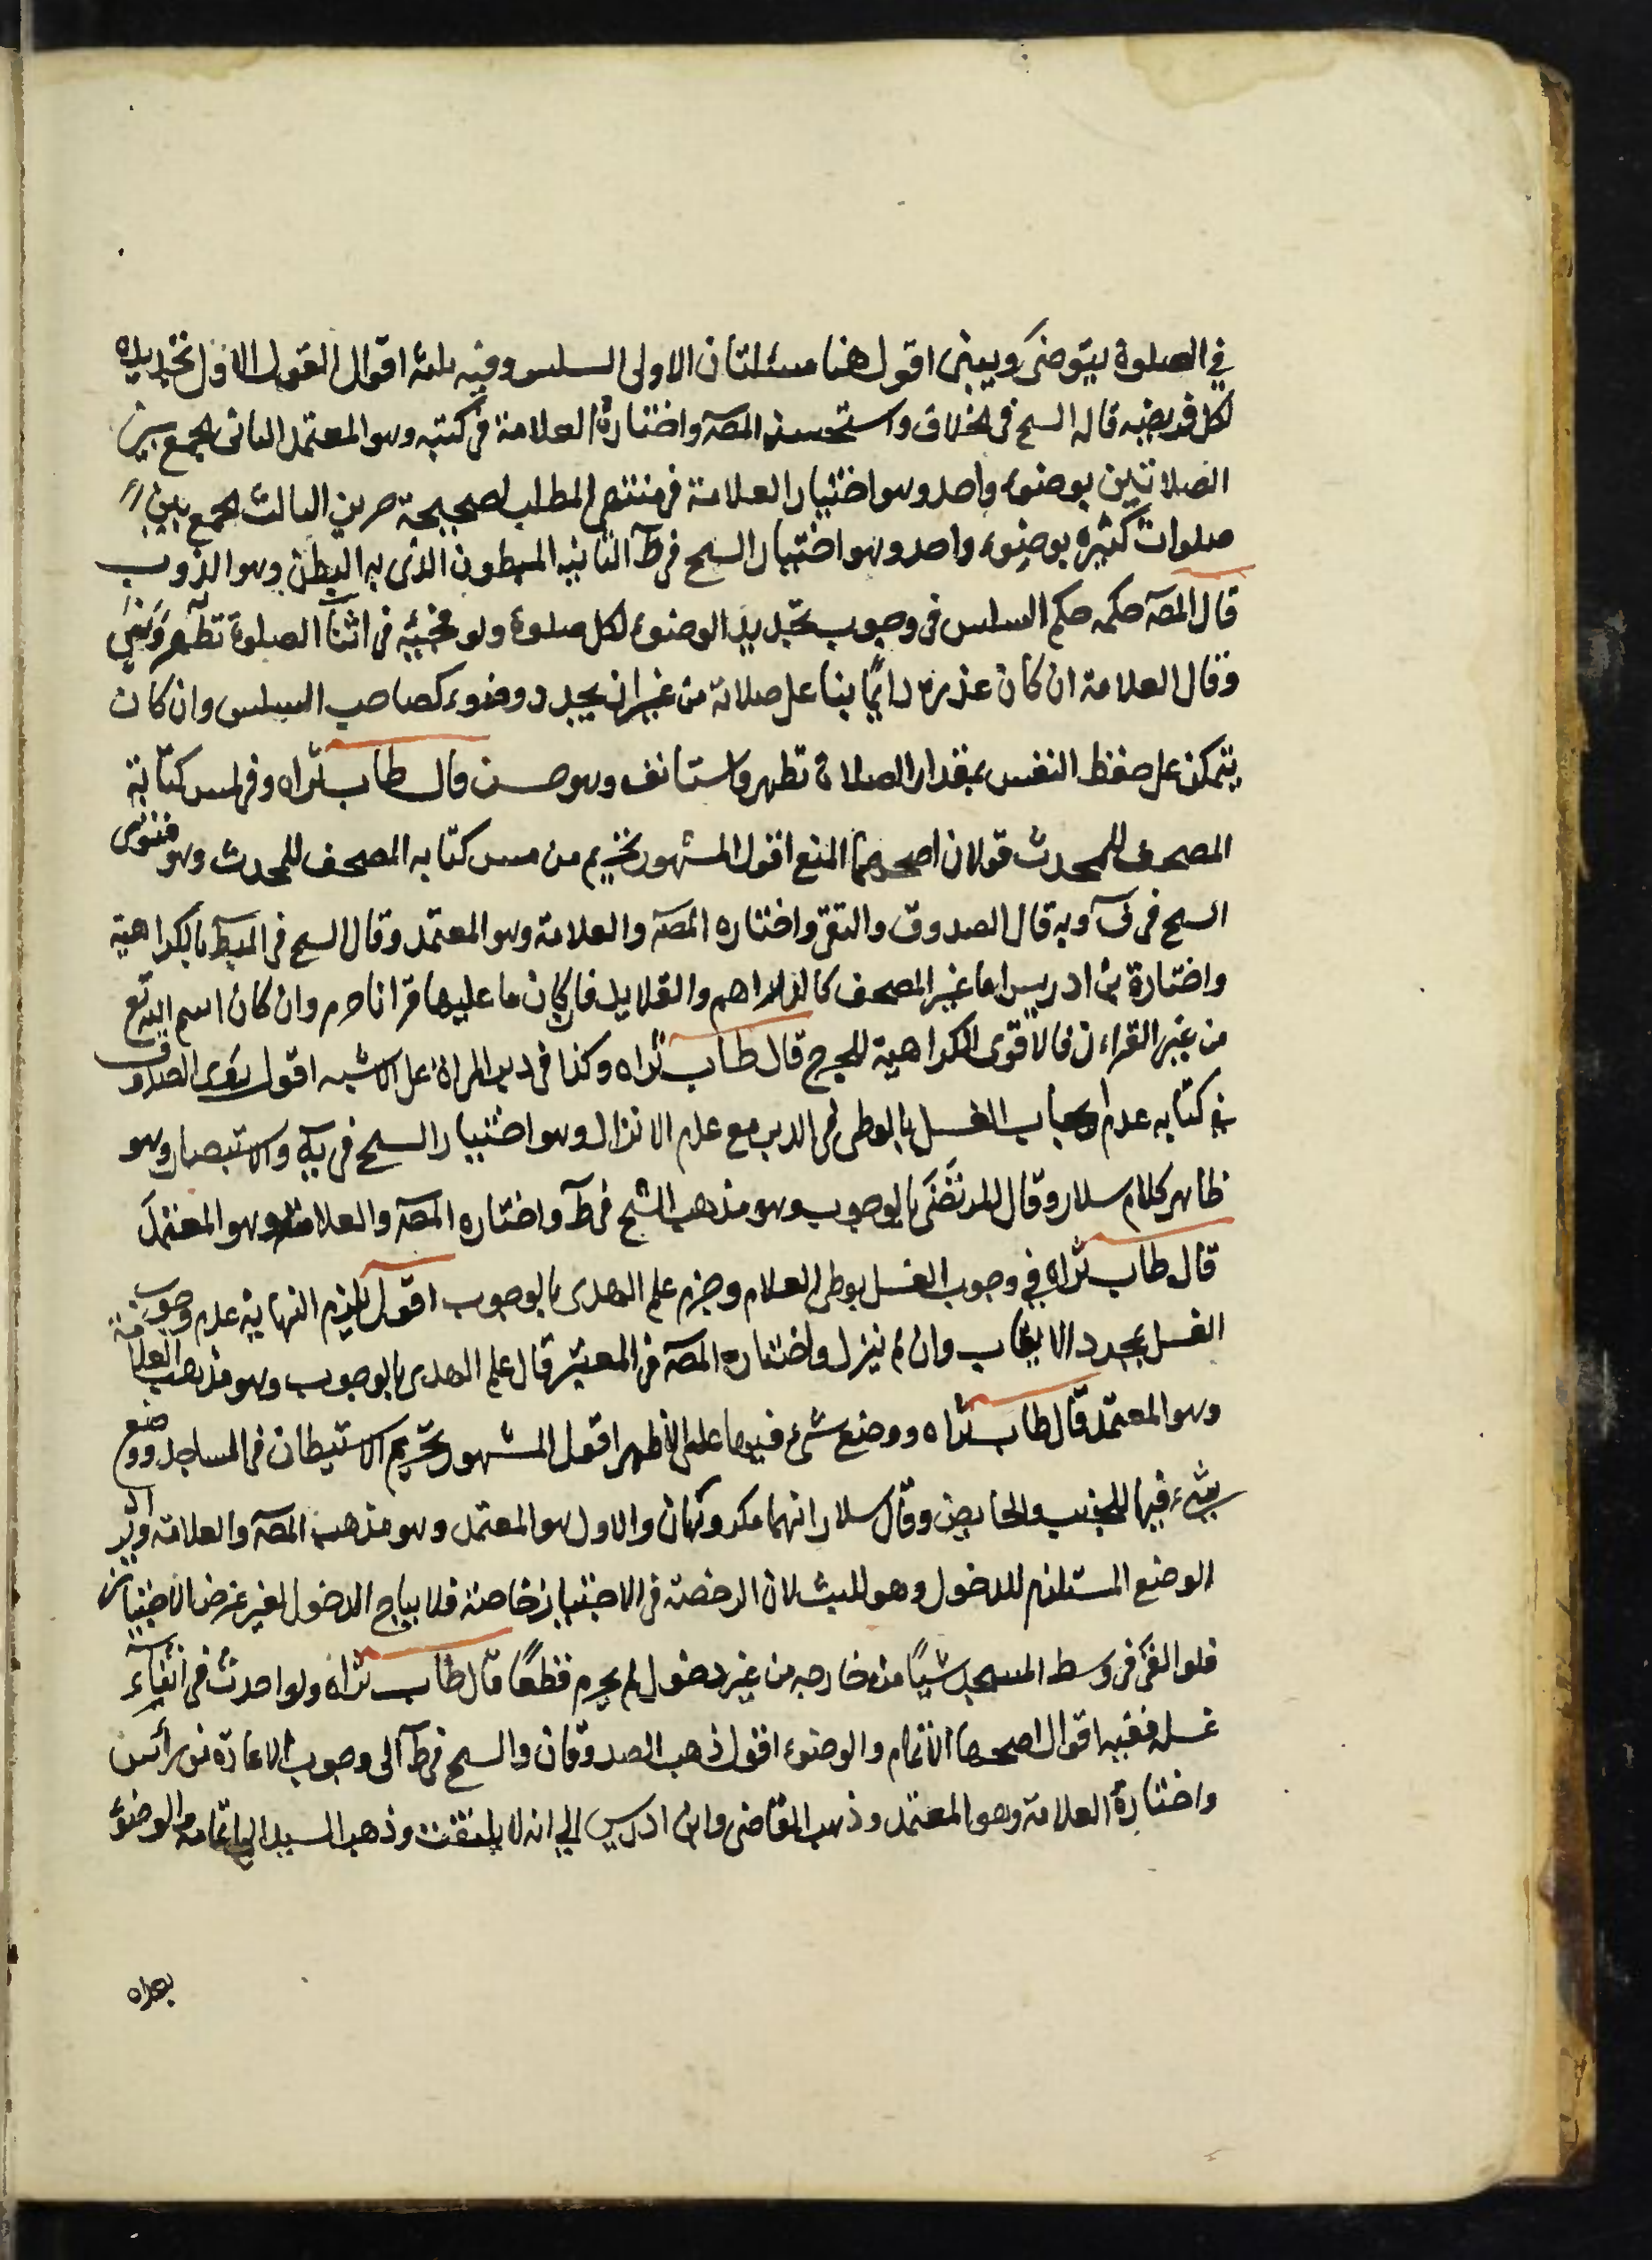 في الصلوة يتوضى ويبنى اقول هنا مسئلتان الاولى السلس وفيه ثلثه اقوال القول الاول تجديده
لكل فريضه قاله الشيخ في الخلاف واستحسنه المصه واختاره العلامة في كتبه وهو المعتمد الثانى يجمع بين
الصلاتين بوضوء واحد وهو اختيار العلامة في منتهى المطلب لصحيحة حريز الثالث يجمع بين
صلوات كثيره بوضوء واحد وهو اختيار الشيخ في ط الثانيه المبطون الذى به البطن وهو الذوب
قال المصه حكمه حكم السلس في وجوب تجديد الوضوء لكل صلوة ولو فجئه في اثنا الصلوة تطهر وبنى
وقال العلامة ان كان عذره دايمًا بنا على صلاته من غير ان يجدد وضوء كصاحب السلس وان كان
يتمكن على حفظ النفس بمقدار الصلاة تطهر واستانف وهو حسن قال طاب ثراه وفي لمس كتابة
المصحف للمحدث قولان اصحهما المنع اقول المشهور تحريم من مس كتابه المصحف للمحدث وهو فتوى
الشيخ في ف وبه قال الصدوق والتقى واختاره المصه والعلامة وهو المعتمد وقال الشيخ في المبط بالكراهية
واختارة بن ادريس اما غير المصحف كالدراهم والقلايد فان كان ما عليها قرانا حرم وان كان اسم الله تع
من غير القراءن فالاقوى الكراهية للحرج قال طاب ثراه وكذا في دبر المراة على الاشبه اقول الصدوق
في كتابه عدم ايجاب الغسل بالوطى في الدبر مع عدم الانزال وهو اختيار الشيخ في يه والاستبصار وهو
ظاهر كلام سلار وقال المرتضى بالوجوب وهو مذهب الشيخ في ط واختاره المصه والعلامة وهو المعتمد
قال طاب ثراه في وجوب الغسل بوطى الغلام وجزم علم الهدى بالوجوب اقول النهاية عدم وجوب
الغسل بمجرد الايقاب وان لم ينزل واختاره المصه في المعتبر قال علم الهدى بالوجوب وهو مذهب العلامة
وهو المعتمد قال طاب ثراه ووضع شىء فيها على الاظهر اقول المشهور تحريم الاستيطان في المساجد ووضع
شىء فيها للجنب والحايض وقال سلار انهما مكروهان والاول هو المعتمد وهو مذهب المصه والعلامة
الوضع المستلزم للدخول وهو للبث لان الرخصة في الاجتياز خاصة فلا يباح الدخول لغير غرض الاجتياز
فلو القى في وسط المسجد شيًا من خارجه من غير دخول لم يحرم قطعًا قال طاب ثراه ولو احدث في اثناء
غسله ففيه اقوال اصحها الاتمام والوضوء اقول ذهب الصدوقان والشيخ في ط الى وجوب الاعادة من رأس
واختارة العلامة وهو المعتمد وذهب القاضى وابن ادريس الى انه لا يلتفت وذهب السيد الى اتمامه والوضوء
بعده